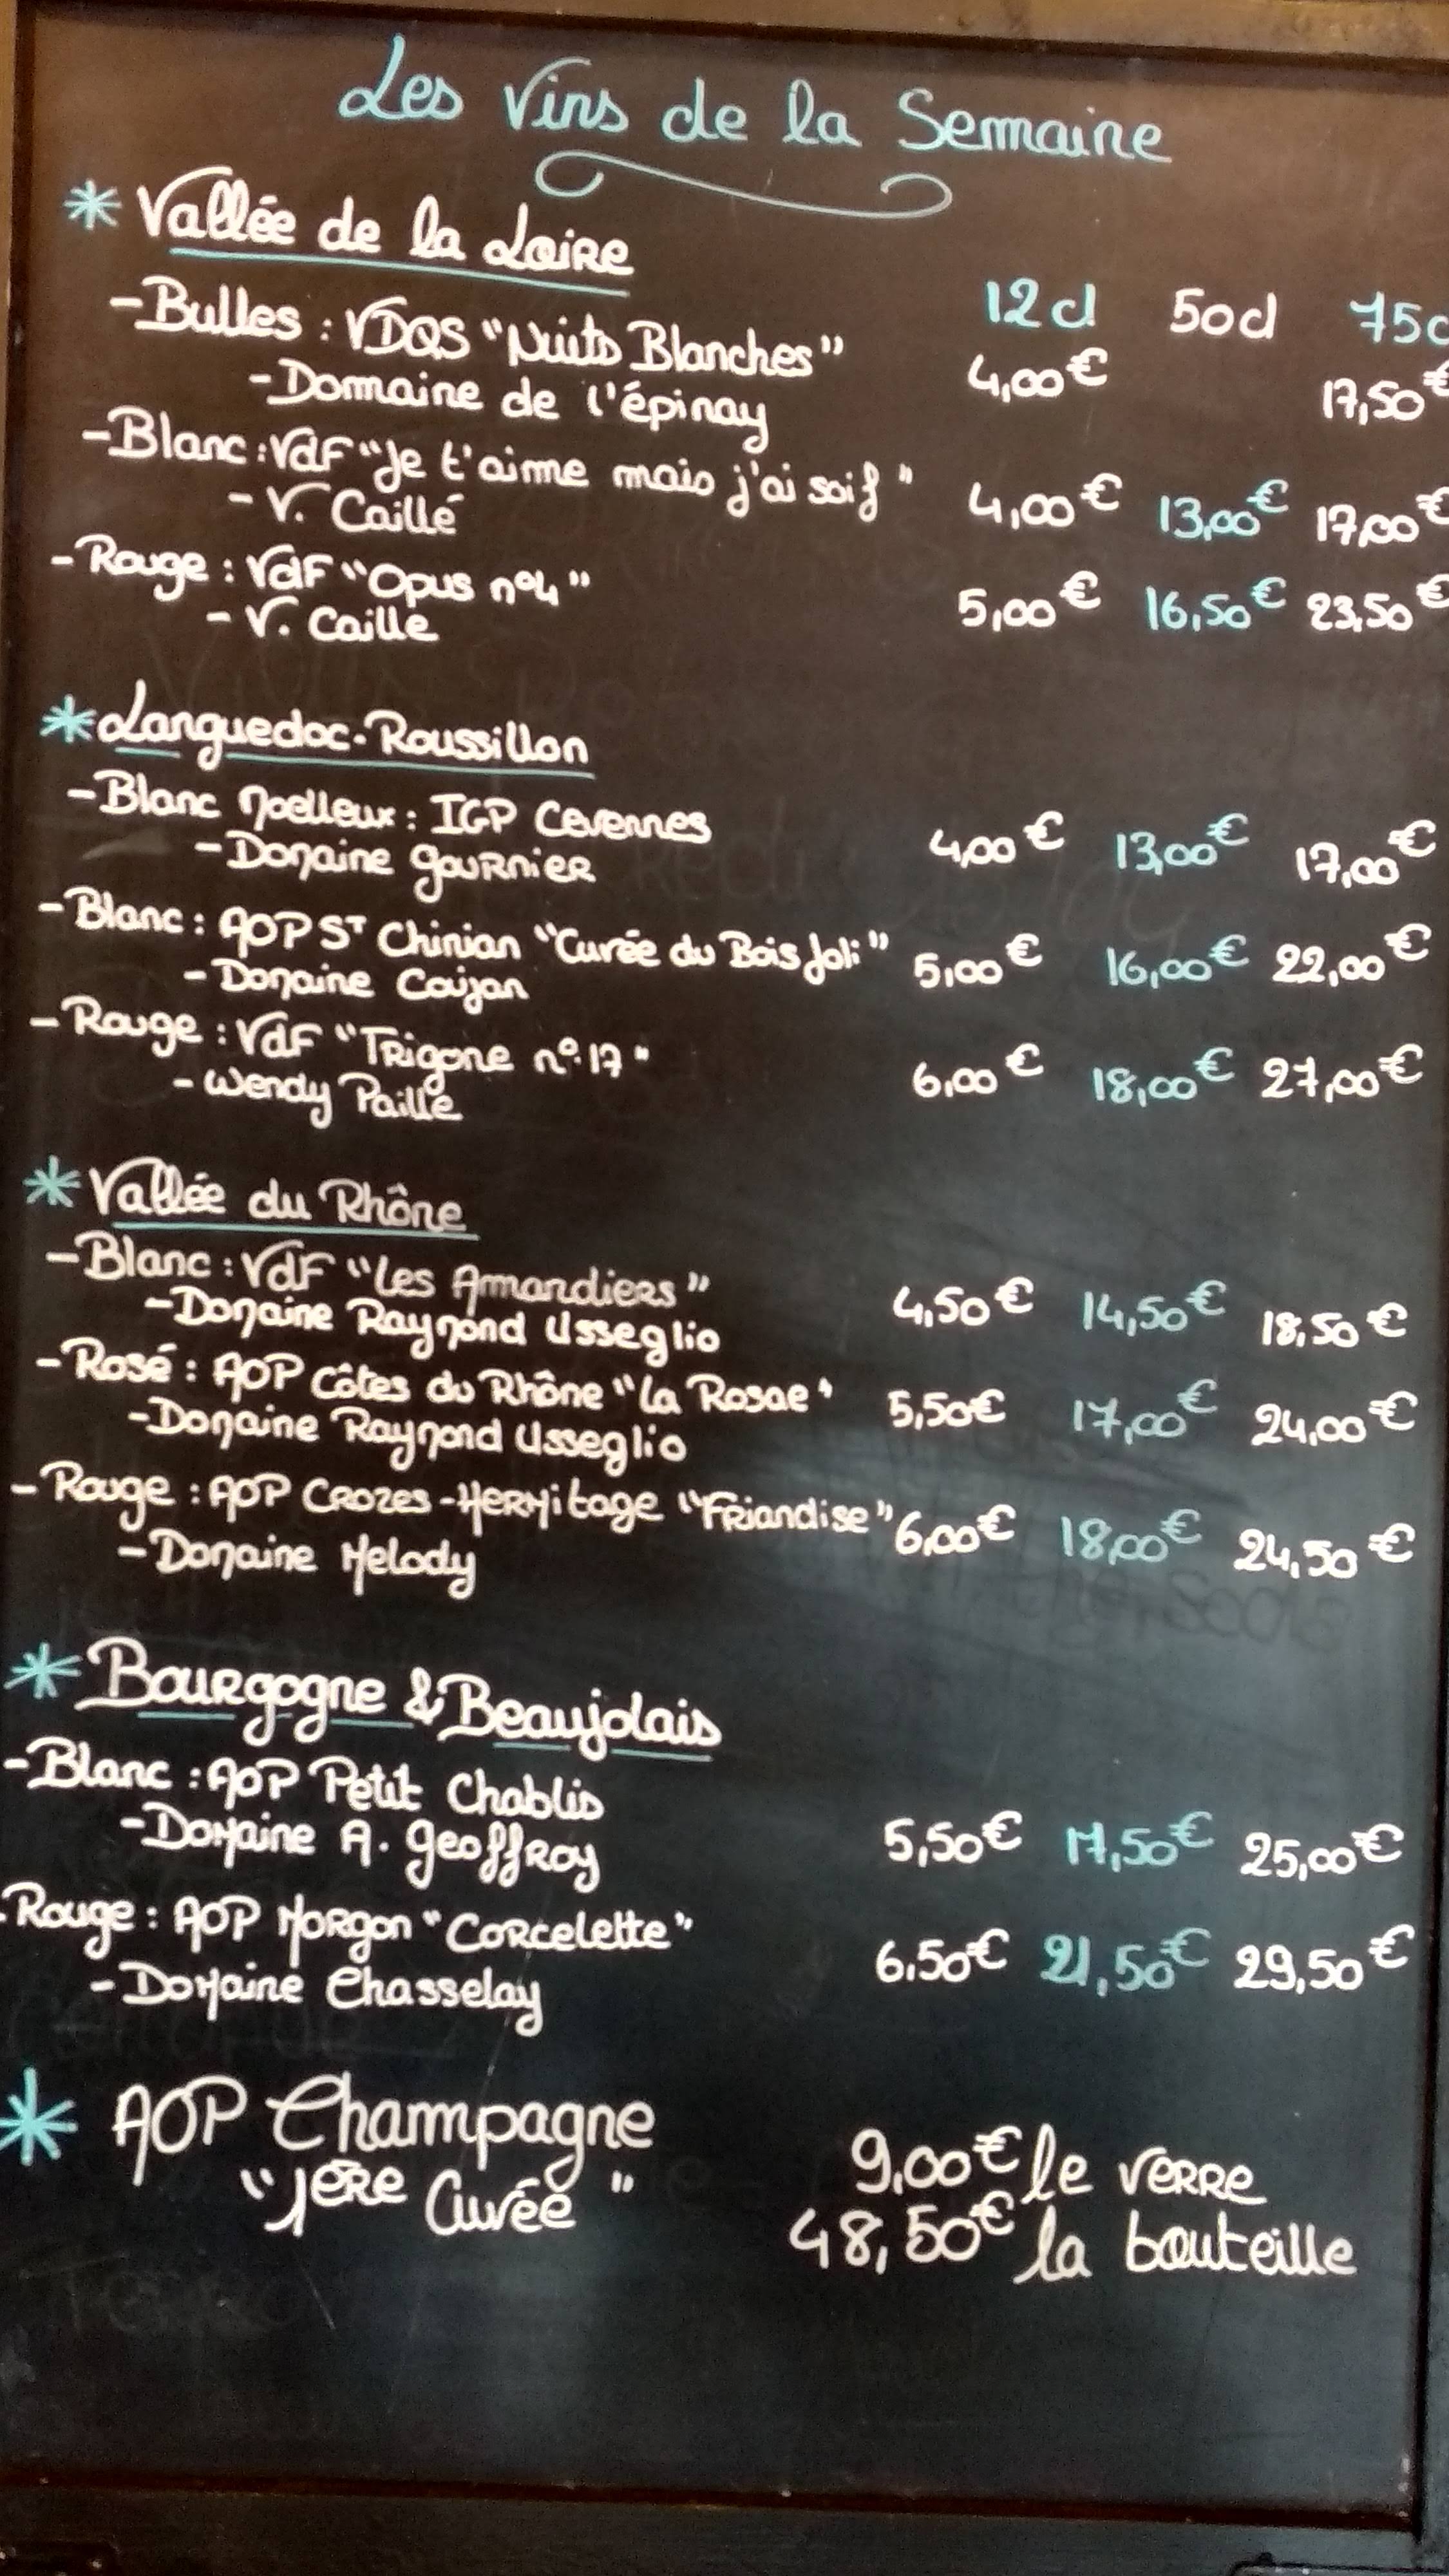 Les Vins de la Semaine
* Vallée de la Loire
12cl 50cl 75c
- Bulles : VDQS "Nuits Blanches" 4,00€ 17,50€
- Domaine de l'épinay
- Blanc : VdF "Je t'aime mais j'ai soif" 4,00€ 13,00€ 17,00€
- V. Caillé
- Rouge : VdF "Opus n°4" 5,00€ 16,50€ 23,50€
- V. Caillé
* Languedoc-Roussillon
- Blanc Moelleux : IGP Cevennes 4,00€ 13,00€ 17,00€
- Domaine Gournier
- Blanc : AOP St Chinian "Cuvée du Bois Joli" 5,00€ 16,00€ 22,00€
- Domaine
- Rouge : VdF "Trigone n°.17" 6,00€ 18,00€ 27,00€
- Wendy Paillé
* Vallée du Rhône
- Blanc : VdF "Les Amandiers" 4,50€ 14,50€ 18,50€
- Domaine Raymond Usseglio
- Rosé : AOP Côtes du Rhône "La Rosae" 5,50€ 17,00€ 24,00€
- Domaine Raymond Usseglio
- Rouge : AOP Crozes-Hermitage "Friandise" 6,00€ 18,00€ 24,50€
- Domaine Melody
* Bourgogne & Beaujolais
- Blanc : AOP Petit Chablis
- Domaine A. Geoffroy 5,50€ 17,50€ 25,00€
- Rouge : AOP Morgon "Corcelette" 6.50€ 21,50€ 29,50€
- Domaine Chasselay
* AOP Champagne
"1ère Cuvée"
9,00€ le verre
48,50€ la bouteille